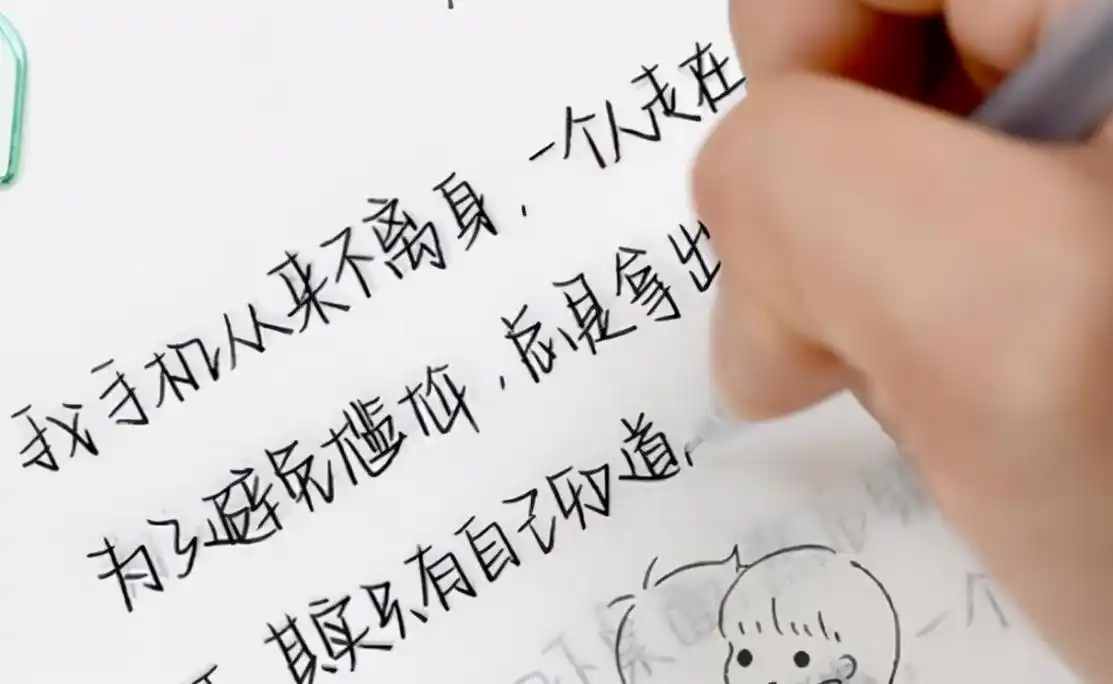 我手机从来不离身，一个人走在
为了避免尴尬，总是拿出
其实只有自己知道，